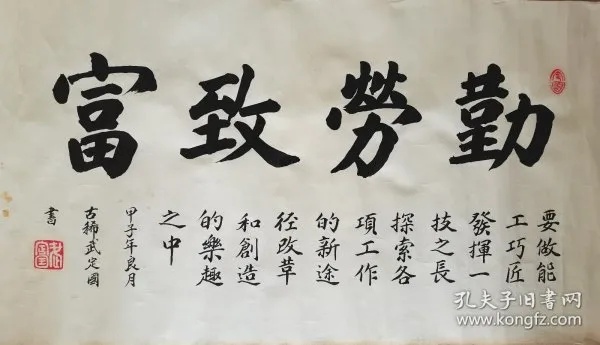 勤勞致富
要做能
工巧匠
發揮一
技之長
探索各
項工作
的新途
径改革
和創造
的樂趣
之中
甲子年良月
古稀武定國
書
孔夫子旧书网
www.kongfz.com